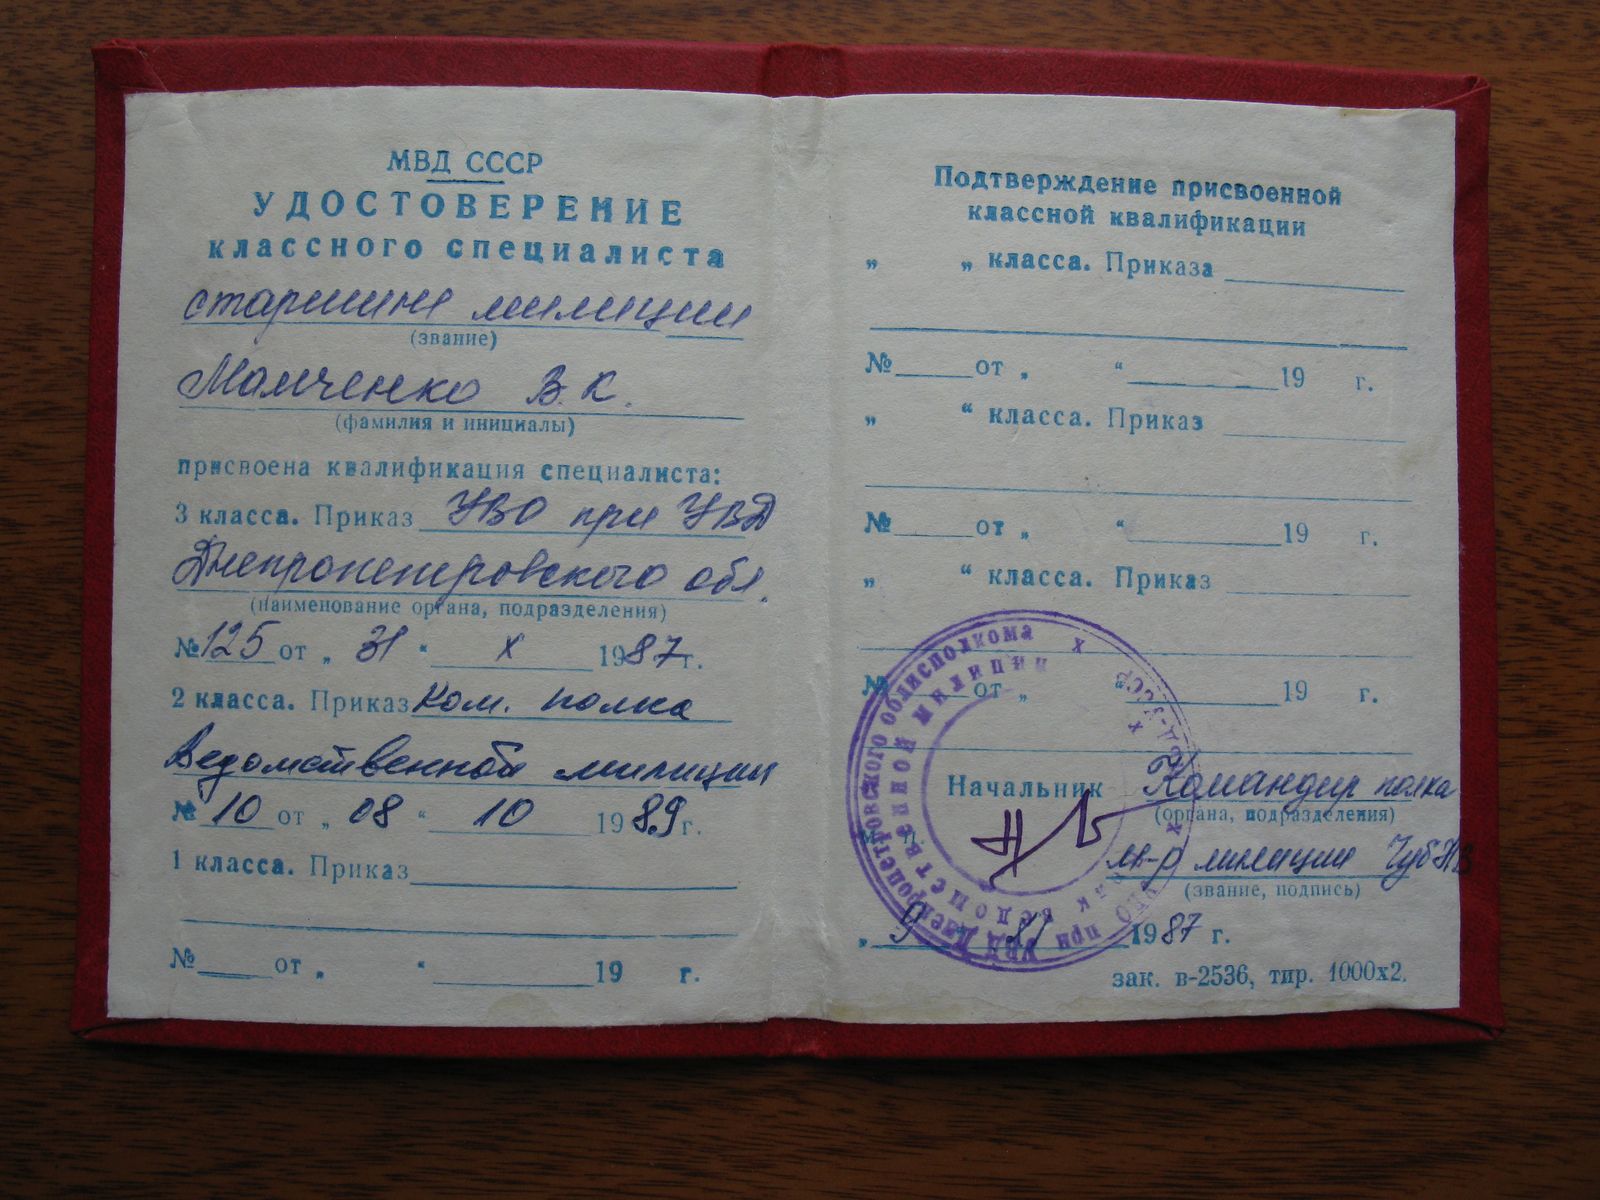 МВД СССР
УДОСТОВЕРЕНИЕ
классного специалиста
старшине милиции
(звание)
Мамченко В.К.
(фамилия и инициалы)
присвоена квалификация специалиста:
3 класса. Приказ УВО при УВД
Днепропетровского обл.
(наименование органа, подразделения)
№ 125 от „ 31 “ X 1987 г.
2 класса. Приказ Ком. полка
Ведомственной милиции
№ 10 от „ 08 “ 10 1989 г.
1 класса. Приказ
№ от „ “ 19 г.
Подтверждение присвоенной
классной квалификации
„ „ класса. Приказа
№ от „ “ 19 г.
„ “ класса. Приказ
№ от „ “ 19 г.
„ “ класса. Приказ
№ от „ “ 19 г.
Начальник Командир полка
(органа, подразделения)
м-р милиции Чуб Н В
(звание, подпись)
„ 9 XI 1987 г.
зак. в-2536, тир. 1000х2.
УВД Днепропетровского облисполкома
ведомственной милиции
при